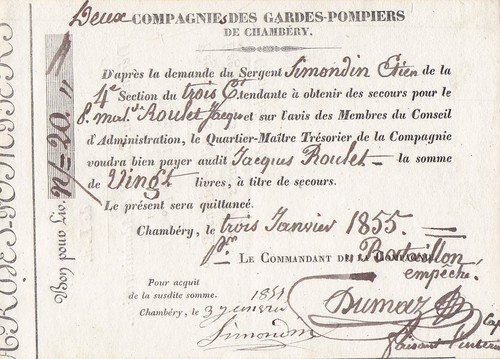 Deux COMPAGNIES DES GARDES-POMPIERS
DE CHAMBÉRY.
D'après la demande du Sergent Simondin Etien de la
4e Section du trois Ct. tendante à obtenir des secours pour le
S. mal. Roulet Jacq et sur l'avis des Membres du Conseil
d'Administration, le Quartier-Maître Trésorier de la Compagnie
voudra bien payer audit Jacques Roulet la somme
de Vingt livres, à titre de secours.
Le présent sera quittancé.
Chambéry, le trois Janvier 1855.
Pr. LE COMMANDANT DE LA COMPAGNIE
Portaillon
empêché
Dumaz
Cap
faisant
Pour acquit
de la susdite somme.
Chambéry, 3 janvier 1855
Simondin
Bon pour Liv. n/= 20 "